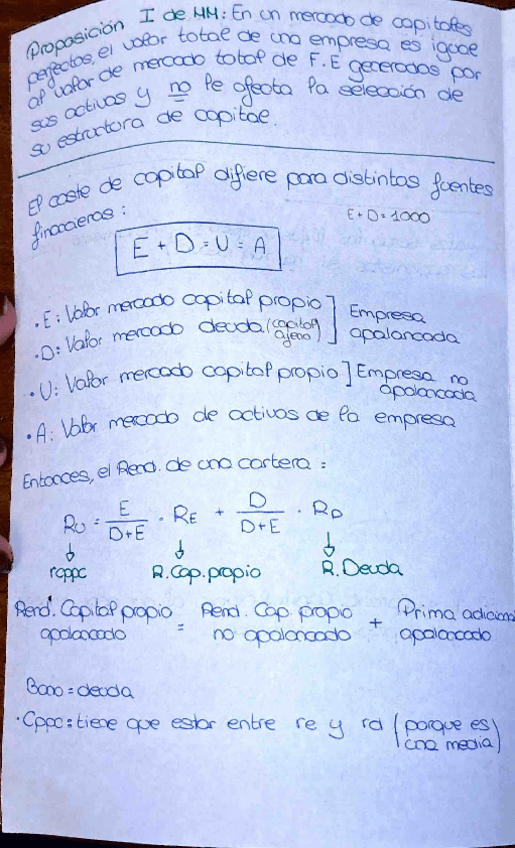 Proposición I de MM: En un mercado de capitales
perfectos, el valor total de una empresa es igual
al valor de mercado total de F.E generados por
sus activos y no le afecta la selección de
su estructura de capital.
El coste de capital difiere para distintas fuentes
financieros:
E + D = 1000
E + D = U = A
• E: Valor mercado capital propio ] Empresa
• D: Valor mercado deuda (capital ajeno) ] apalancada
• U: Valor mercado capital propio ] Empresa no
apalancada
• A: Valor mercado de activos de la empresa
Entonces, el Rend. de una cartera:
RU = E/D+E · RE + D/D+E · RD
↓ ↓ ↓
rcppc R.Cap.propio R.Deuda
Rend. Capital propio = Rend. Cap. propio + Prima adicional
apalancado no apalancado apalancado
Bono = deuda
• Cppc: tiene que estar entre re y rd (porque es
una media)